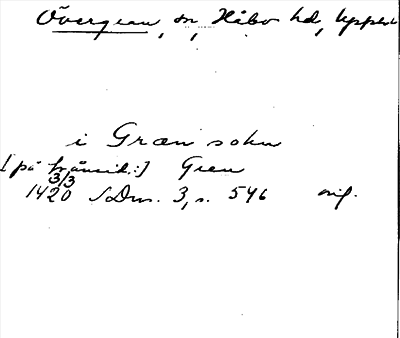 Övergran, sn, Håbo hd, Uppsal
i Græn sokn
[på frånsid.:] Gren
3/3
1420 SDns. 3, s. 546 orig.